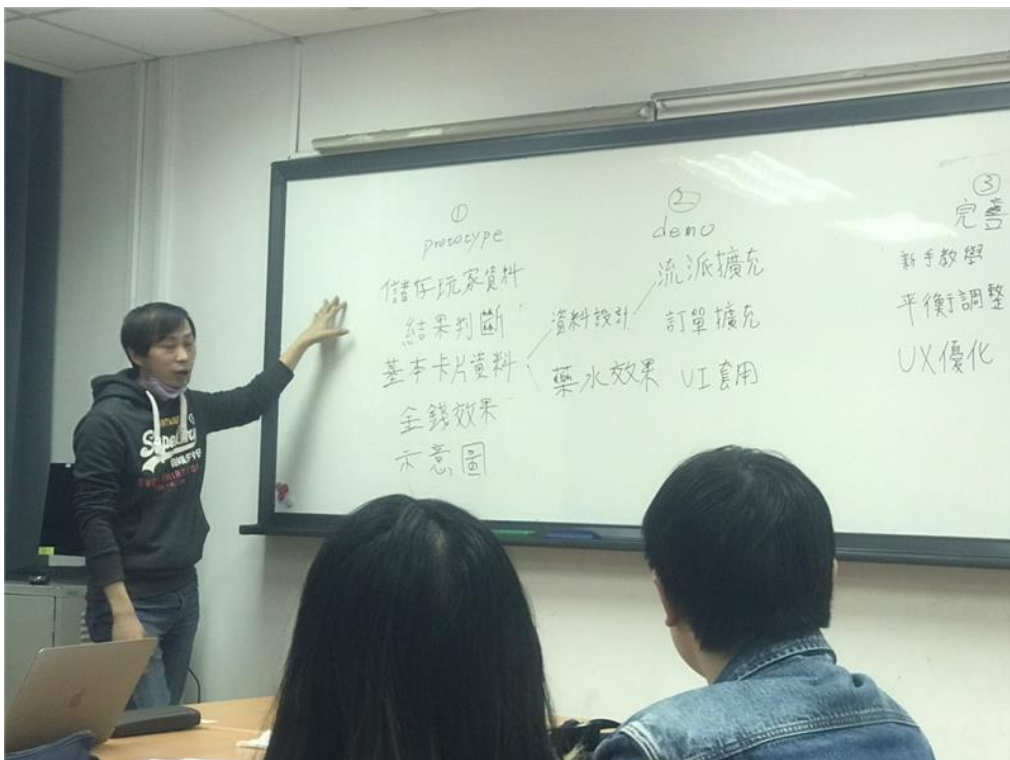 ①
prototype
儲存玩家資料
結果判斷
基本卡片資料
金錢效果
示意圖
資料設計
藥水效果
②
demo
流派擴充
訂單擴充
UI套用
③
完善
新手教學
平衡調整
UX優化
Superdry